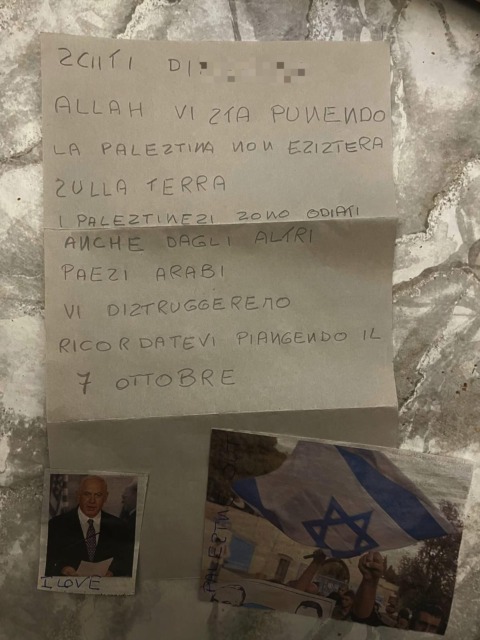 ZCIITI DI
ALLAH VI ZTA PUNENDO
LA PALEZTINA NON EZIZTERA
ZULLA TERRA
I PALEZTINEZI ZONO ODIATI
ANCHE DAGLI ALTRI
PAEZI ARABI
VI DIZTRUGGEREMO
RICORDATEVI PIANGENDO IL
7 OTTOBRE
I LOVE